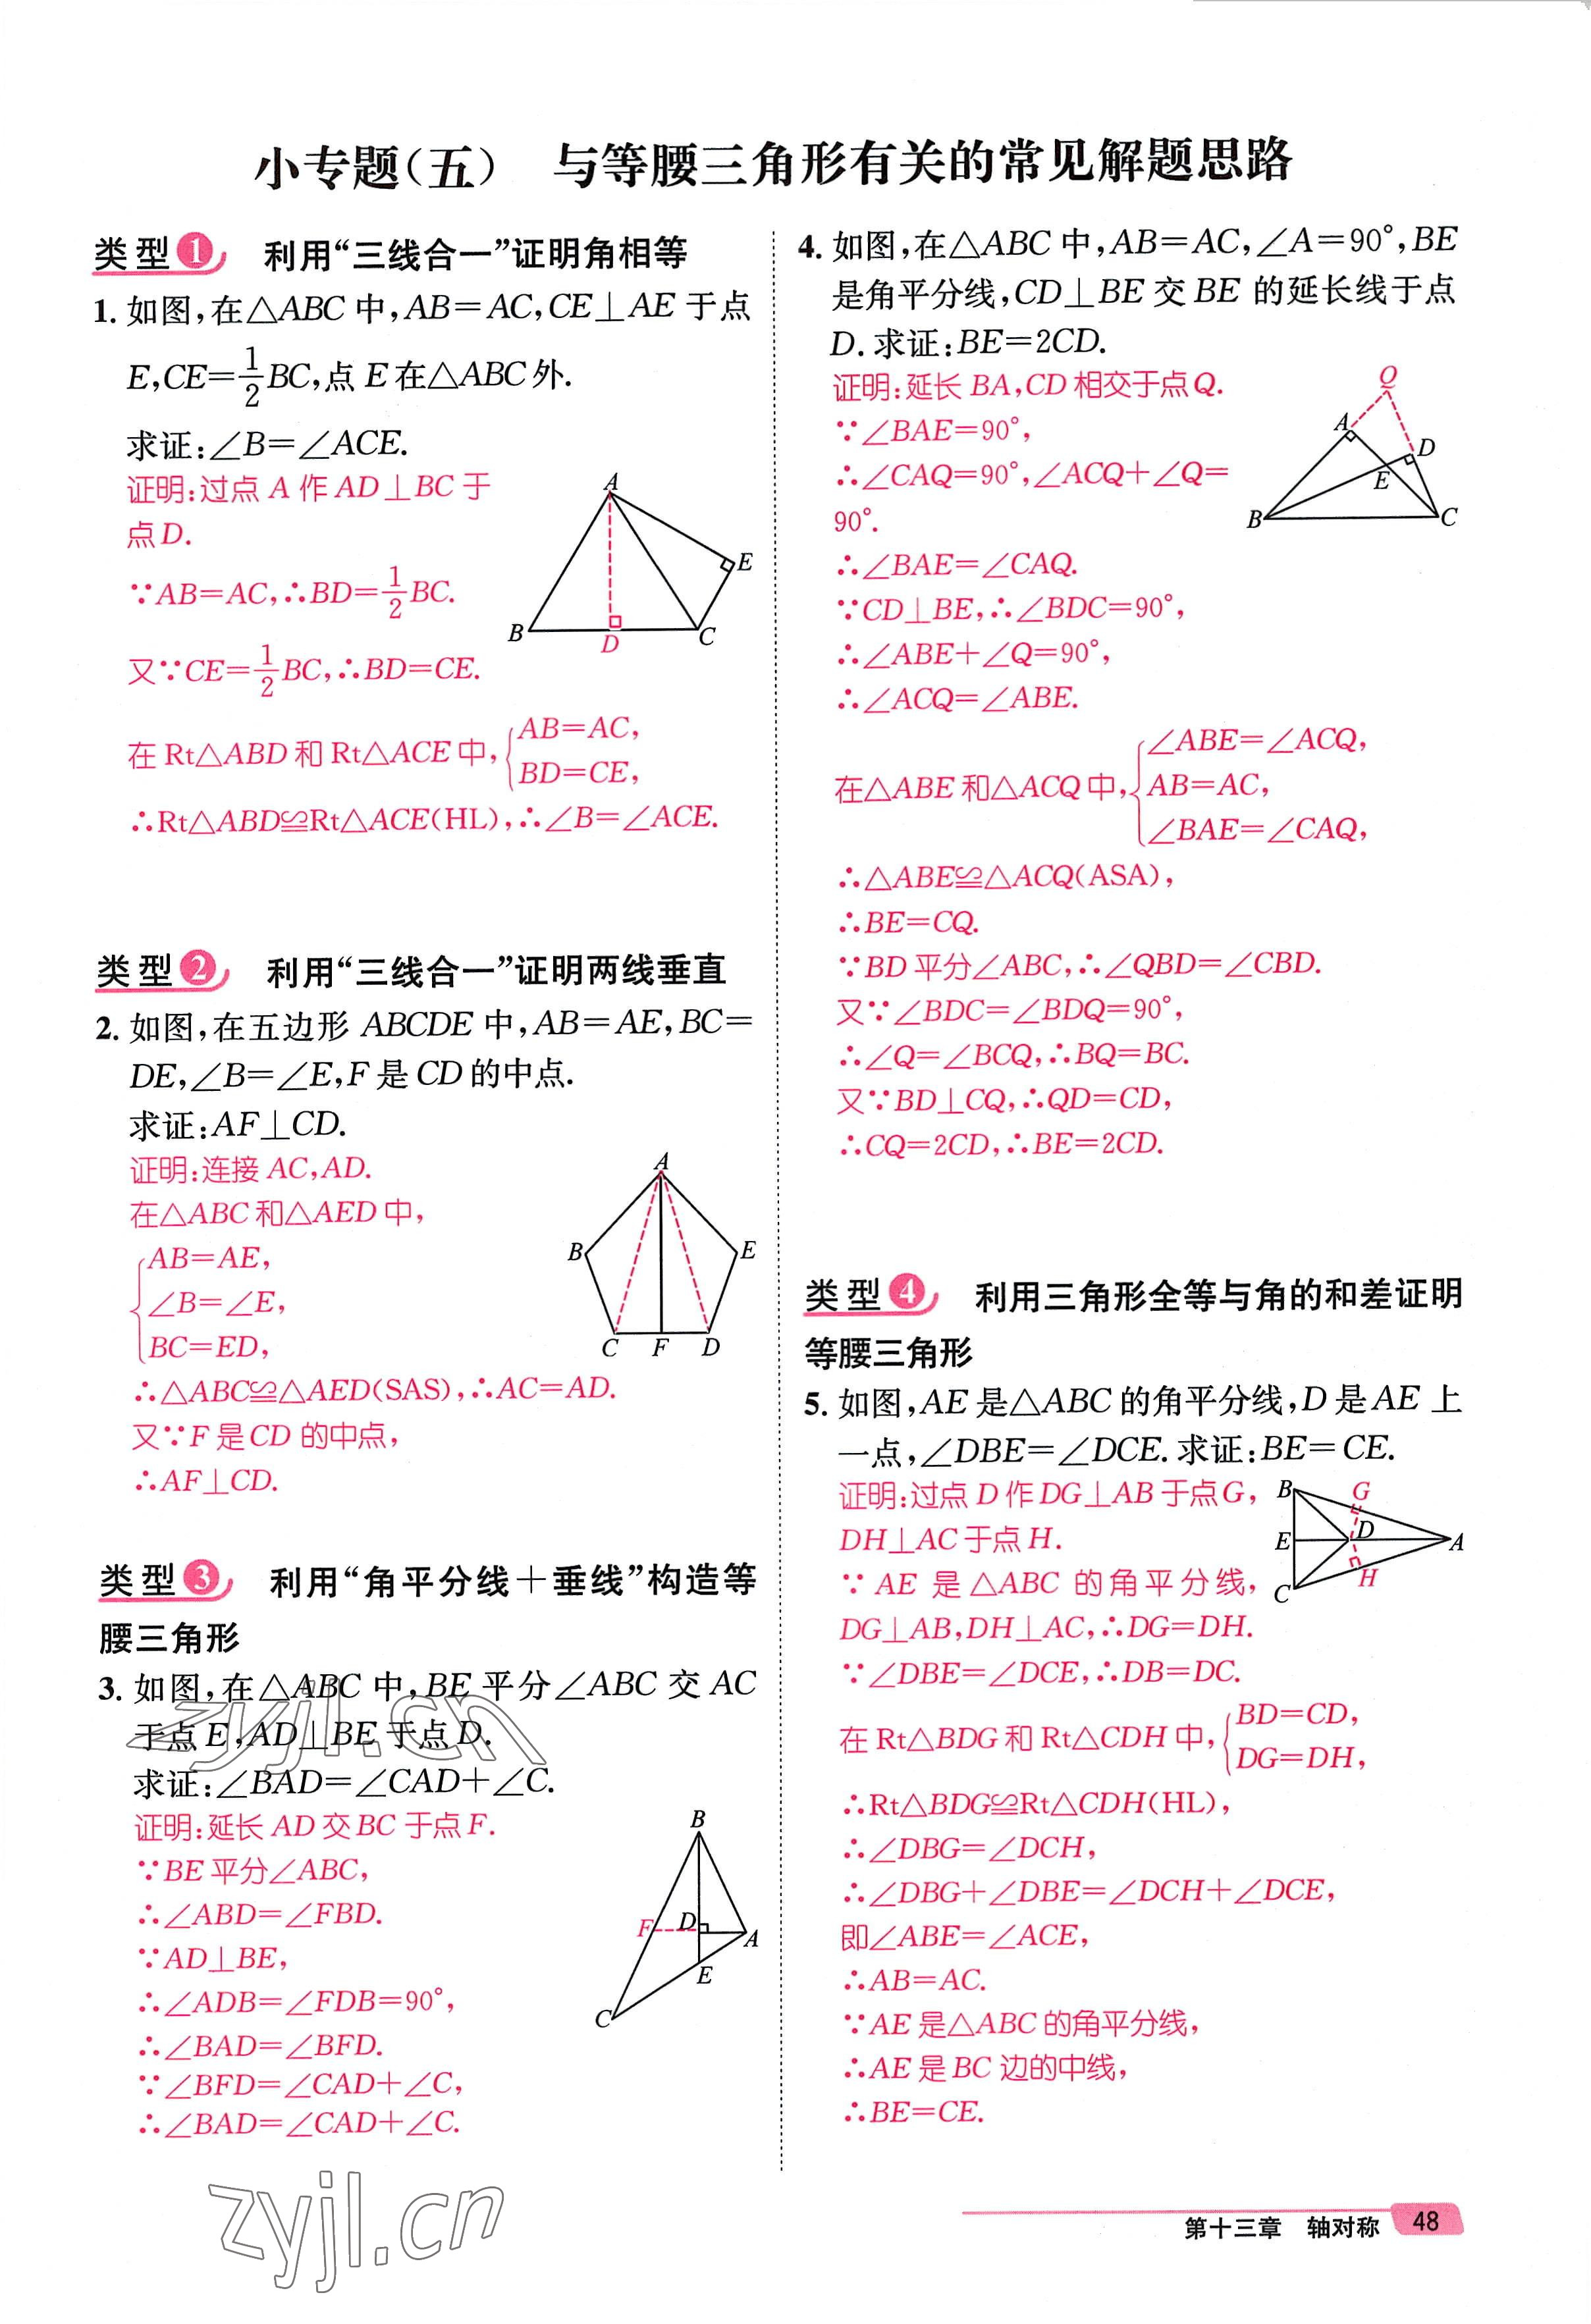 小专题(五) 与等腰三角形有关的常见解题思路
类型1 利用“三线合一”证明角相等
1. 如图,在△ABC中,AB=AC,CE⊥AE于点
E,CE=1/2BC,点E在△ABC外.
求证:∠B=∠ACE.
证明:过点A作AD⊥BC于
点D.
∵AB=AC,∴BD=1/2BC.
又∵CE=1/2BC,∴BD=CE.
在Rt△ABD和Rt△ACE中,{AB=AC,
BD=CE,
∴Rt△ABD≌Rt△ACE(HL),∴∠B=∠ACE.
A
E
B
D
C
类型2 利用“三线合一”证明两线垂直
2. 如图,在五边形ABCDE中,AB=AE,BC=
DE,∠B=∠E,F是CD的中点.
求证:AF⊥CD.
证明:连接AC,AD.
在△ABC和△AED中,
{AB=AE,
∠B=∠E,
BC=ED,
∴△ABC≌△AED(SAS),∴AC=AD.
又∵F是CD的中点,
∴AF⊥CD.
A
B
E
C F D
类型3 利用“角平分线+垂线”构造等
腰三角形
3. 如图,在△ABC中,BE平分∠ABC交AC
于点E,AD⊥BE于点D.
求证:∠BAD=∠CAD+∠C.
证明:延长AD交BC于点F.
∵BE平分∠ABC,
∴∠ABD=∠FBD.
∵AD⊥BE,
∴∠ADB=∠FDB=90°,
∴∠BAD=∠BFD.
∵∠BFD=∠CAD+∠C,
∴∠BAD=∠CAD+∠C.
B
F D
A
E
C
zyjl.cn
zyjl.cn
4. 如图,在△ABC中,AB=AC,∠A=90°,BE
是角平分线,CD⊥BE交BE的延长线于点
D.求证:BE=2CD.
证明:延长BA,CD相交于点Q.
∵∠BAE=90°,
∴∠CAQ=90°,∠ACQ+∠Q=
90°.
∴∠BAE=∠CAQ.
∵CD⊥BE,∴∠BDC=90°,
∴∠ABE+∠Q=90°,
∴∠ACQ=∠ABE.
在△ABE和△ACQ中,{∠ABE=∠ACQ,
AB=AC,
∠BAE=∠CAQ,
∴△ABE≌△ACQ(ASA),
∴BE=CQ.
∵BD平分∠ABC,∴∠QBD=∠CBD.
又∵∠BDC=∠BDQ=90°,
∴∠Q=∠BCQ,∴BQ=BC.
又∵BD⊥CQ,∴QD=CD,
∴CQ=2CD,∴BE=2CD.
Q
A
D
E
B
C
类型4 利用三角形全等与角的和差证明
等腰三角形
5. 如图,AE是△ABC的角平分线,D是AE上
一点,∠DBE=∠DCE.求证:BE=CE.
证明:过点D作DG⊥AB于点G,
DH⊥AC于点H.
∵AE是△ABC的角平分线,
DG⊥AB,DH⊥AC,∴DG=DH.
∵∠DBE=∠DCE,∴DB=DC.
在Rt△BDG和Rt△CDH中,{BD=CD,
DG=DH,
∴Rt△BDG≌Rt△CDH(HL),
∴∠DBG=∠DCH,
∴∠DBG+∠DBE=∠DCH+∠DCE,
即∠ABE=∠ACE,
∴AB=AC.
∵AE是△ABC的角平分线,
∴AE是BC边的中线,
∴BE=CE.
B
G
E
D
A
C
H
第十三章 轴对称 48